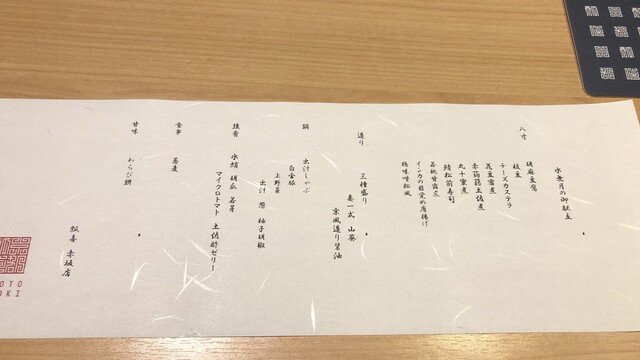 水無月の御献立
八寸
胡麻豆腐
枝豆
チーズカステラ
花豆蜜煮
赤蒟蒻土佐煮
丸十蜜煮
鯖松前寿司
若桃甘露煮
インカの目覚め唐揚げ
鶏味噌松風
造り
三種盛り
妻一式 山葵
京風造り醤油
鍋
出汁しゃぶ
白金豚
上野菜
出汁 葱 柚子胡椒
強肴
水蛸 胡瓜 若芽
マイクロトマト 土佐酢ゼリー
食事
蕎麦
甘味
わらび餅
瓢喜 赤坂店
OTO
OKI